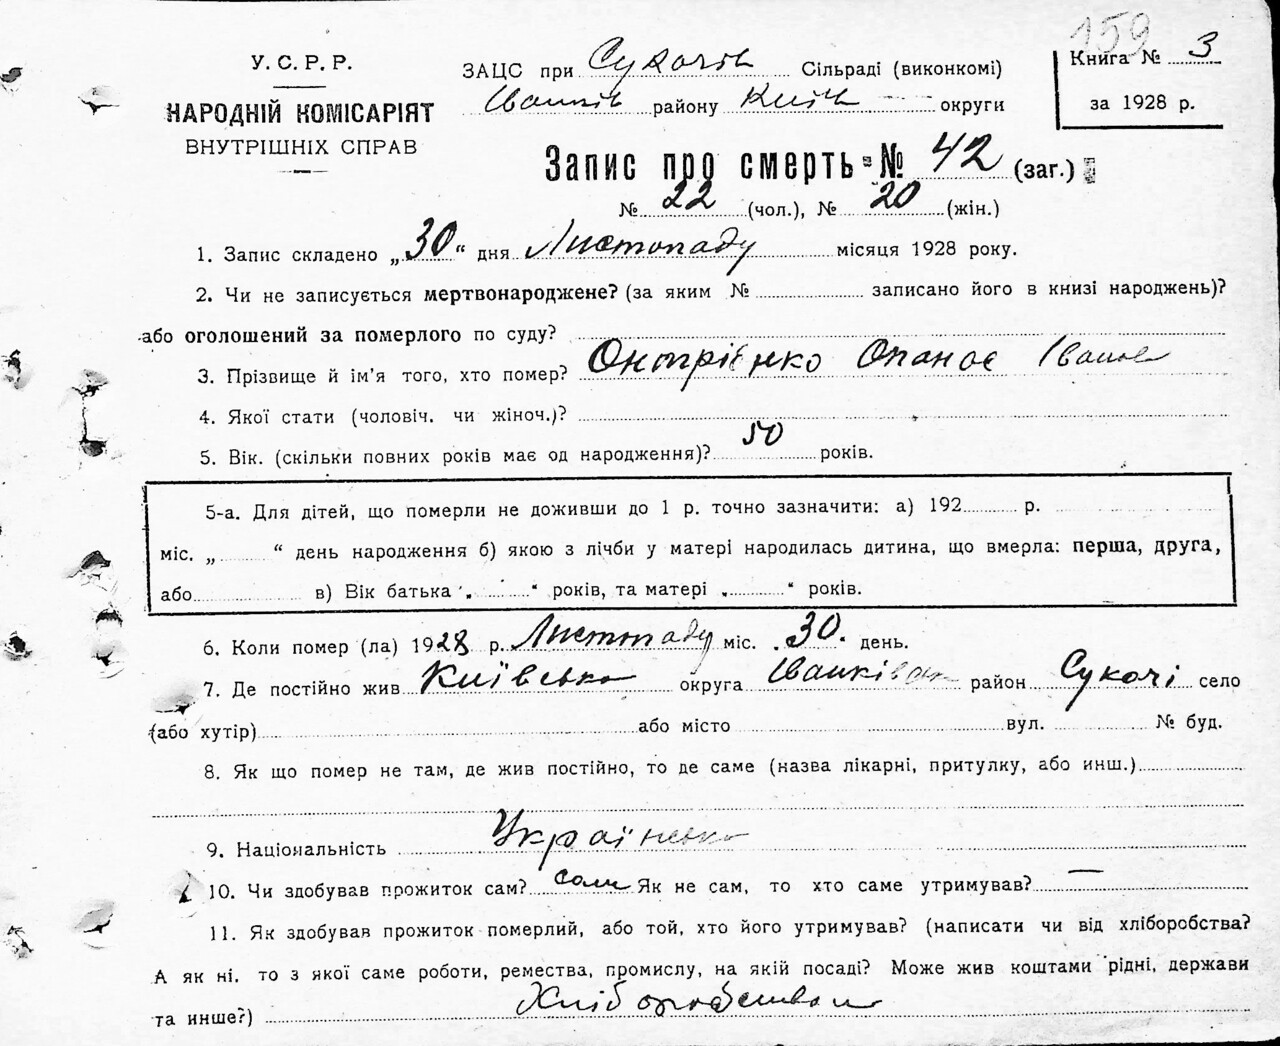 159
У. С. Р. Р.
НАРОДНІЙ КОМІСАРІЯТ
ВНУТРІШНІХ СПРАВ
ЗАЦС при Сукачів Сільраді (виконкомі)
Іванків району Київ округи
Книга № 3
за 1928 р.
Запис про смерть № 42 (заг.)
№ 22 (чол.), № 20 (жін.)
1. Запис складено „30“ дня Листопаду місяця 1928 року.
2. Чи не записується мертвонароджене? (за яким № записано його в книзі народжень)?
або оголошений за померлого по суду?
3. Прізвище й ім'я того, хто помер? Онтрієнко Опанас Іванов
4. Якої стати (чоловіч. чи жіноч.)?
5. Вік. (скільки повних років має од народження)? 50 років.
5-а. Для дітей, що померли не доживши до 1 р. точно зазначити: а) 192 р.
міс. „ “ день народження б) якою з лічби у матері народилась дитина, що вмерла: перша, друга,
або в) Вік батька „ “ років, та матері „ “ років.
6. Коли помер (ла) 1928 р. Листопаду міс. 30. день.
7. Де постійно жив Київсько округа Іванківськ район Сукачі село
(або хутір) або місто вул. № буд.
8. Як що помер не там, де жив постійно, то де саме (назва лікарні, притулку, або инш.)
9. Національність Українсько
10. Чи здобував прожиток сам? сам Як не сам, то хто саме утримував? —
11. Як здобував прожиток померлий, або той, хто його утримував? (написати чи від хліборобства?
А як ні, то з якої саме роботи, ремества, промислу, на якій посаді? Може жив коштами рідні, держави
та инше?) Хліборобством